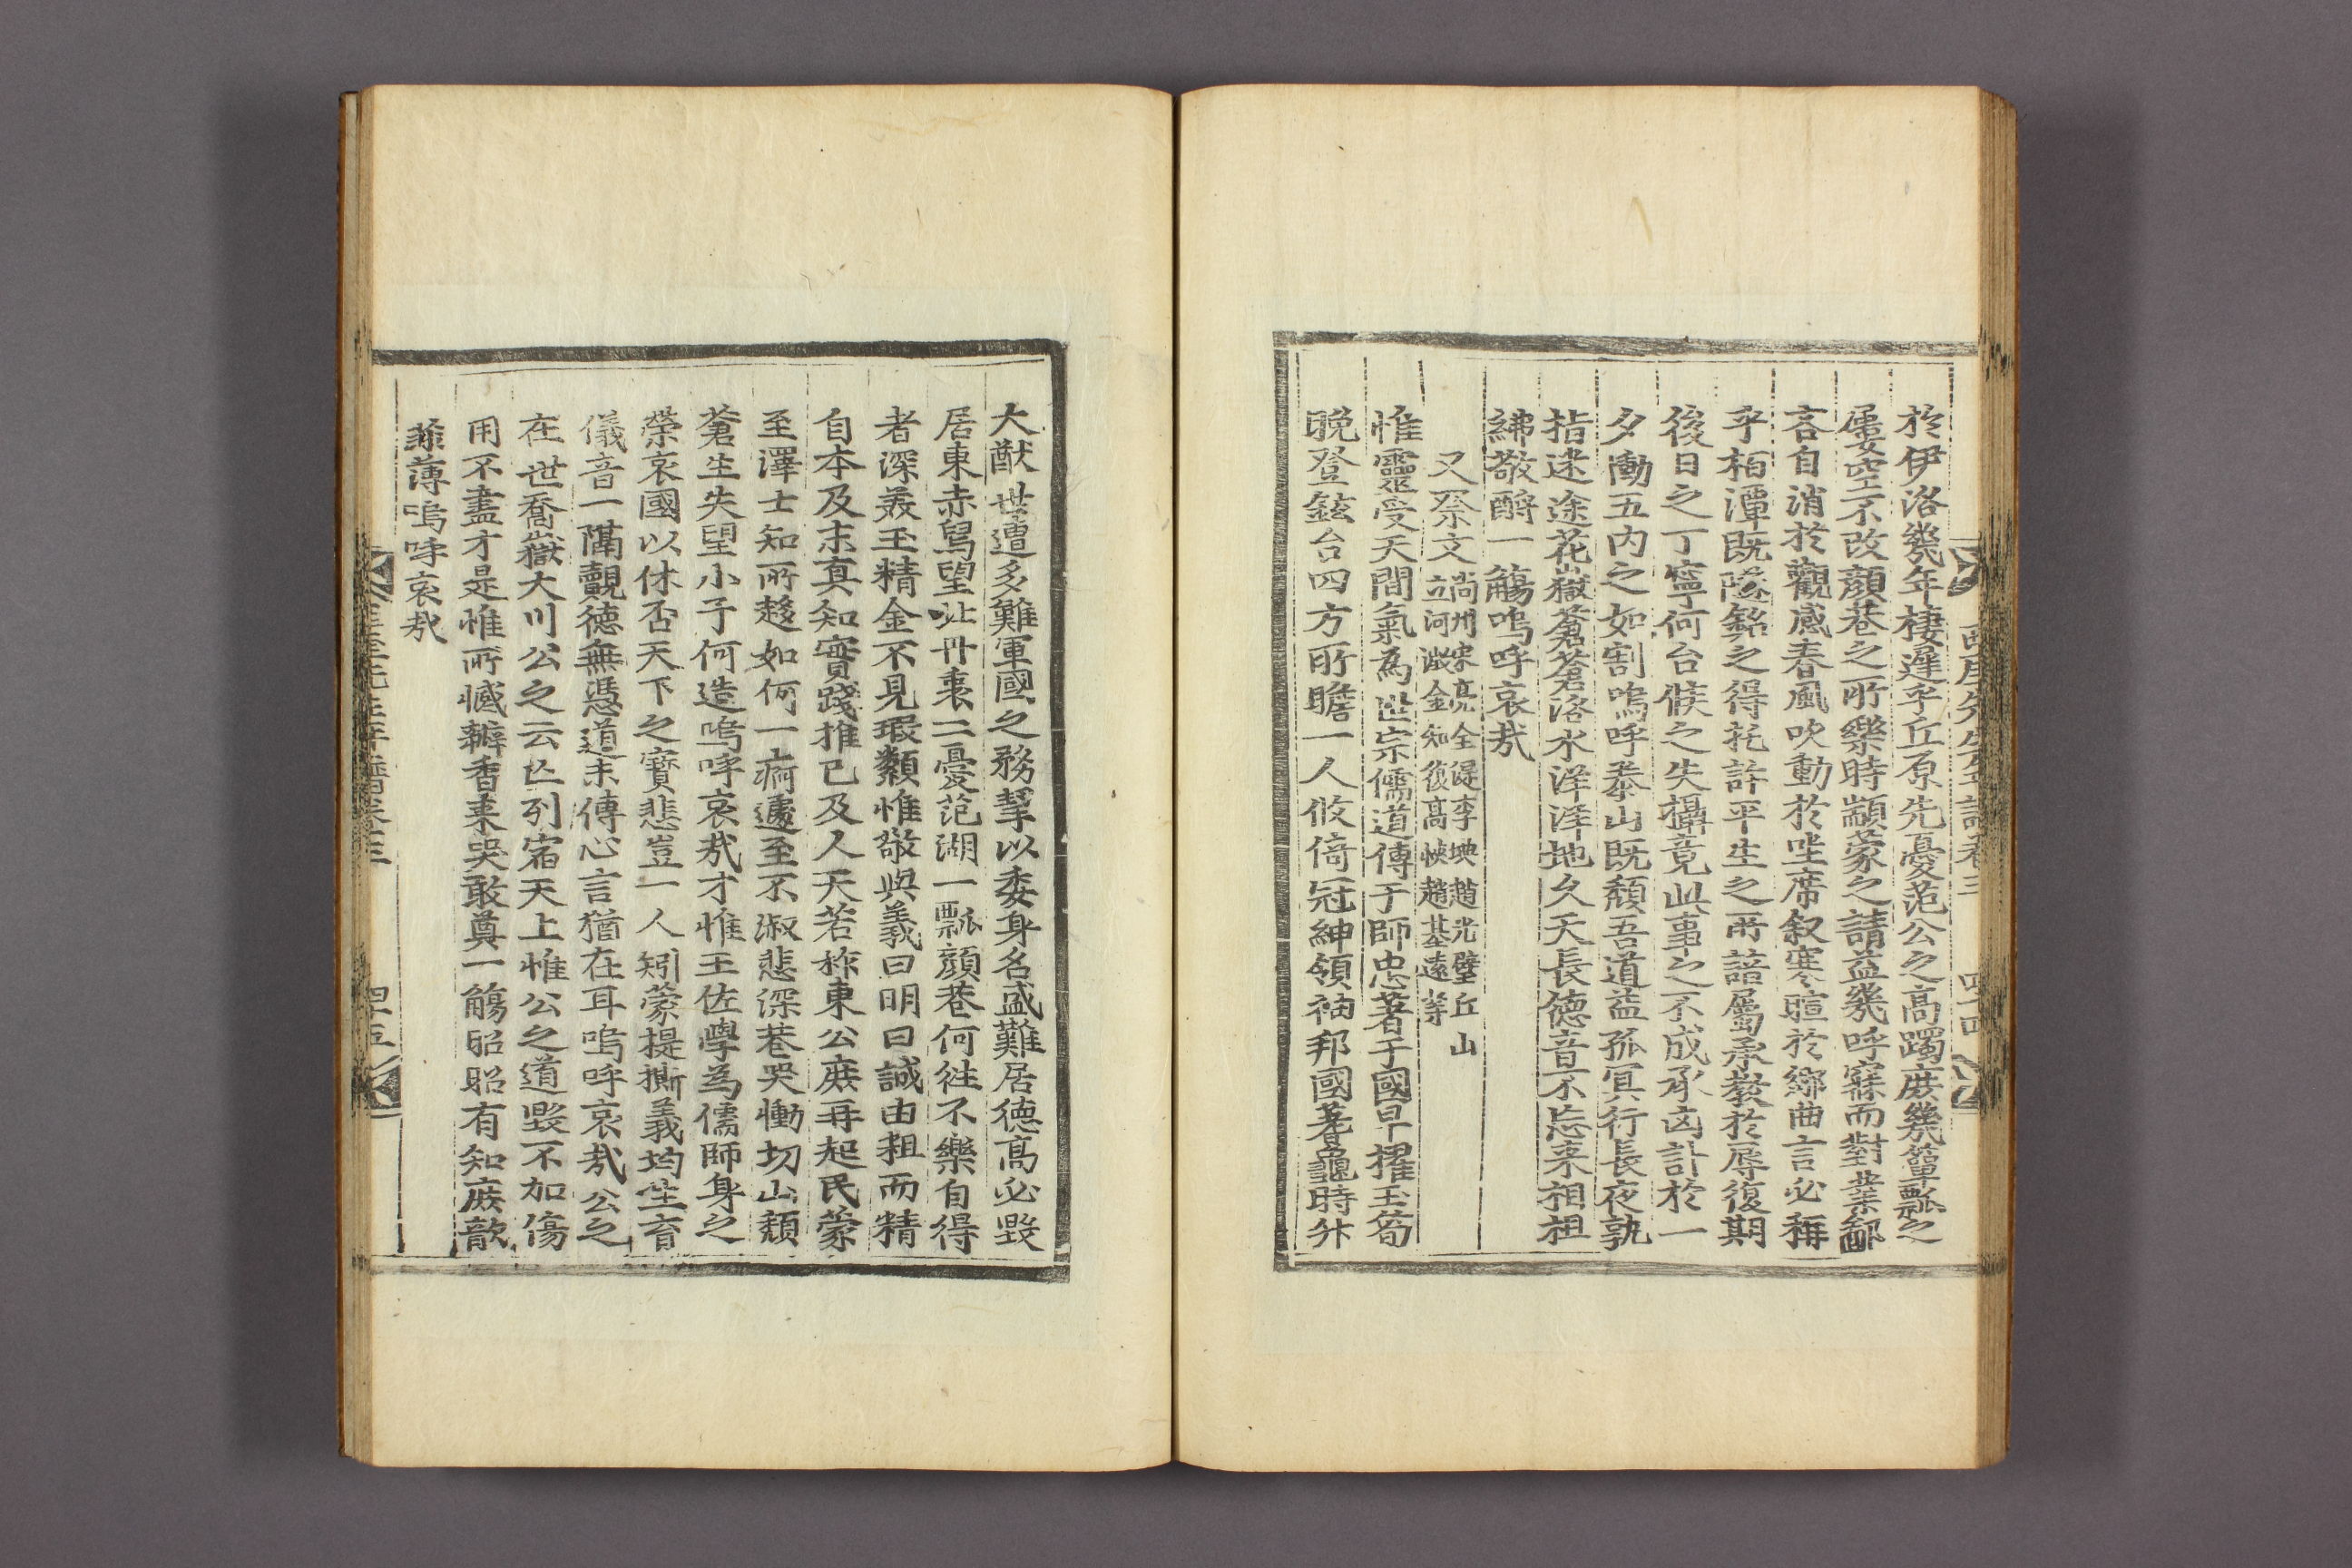 西厓先生年譜卷三 四十四
於伊洛幾年棲遲乎丘原先憂范公之高躅庶幾簞瓢之
屢空不改顔巷之所樂時顓蒙之請益幾呼寐而對業鄙
吝自消於觀感春風吹動於坐席叙寒暄於鄉曲言必稱
乎栢潭既隧銘之得託許平生之所諳屬承教於辱復期
後日之丁寧何台候之失攝竟此事之不成承凶訃於一
夕慟五內之如割嗚呼泰山既頹吾道益孤冥行長夜孰
指迷途花嶽蒼蒼洛水洋洋地久天長德音不忘来相祖
紼敬酹一觴嗚呼哀哉
又祭文 尙州宋亮全湜李㙉趙光璧丘山
立河澂金知復高怏趙基遠等
惟靈受天間氣為世宗儒道傳于師忠著于國早擢玉筍
晚登鉉台四方所瞻一人攸倚冠紳領袖邦國蓍龜時升
大猷世遭多難軍國之務挈以委身名盛難居德高必毀
居東赤舃望北丹衷二憂范湖一瓢顔巷何徃不樂自得
者深羙玉精金不見瑕纇惟敬與義曰明曰誠由粗而精
自本及末真知實踐推己及人天若祚東公庶再起民蒙
至澤士知所趍如何一痾遽至不淑悲深巷哭慟切山頹
蒼生失望小子何造嗚呼哀哉才惟王佐學為儒師身之
榮哀國以休否天下之寶悲豈一人矧蒙提撕義均生育
儀音一隔覿德無憑道未傳心言猶在耳嗚呼哀哉公之
在世喬嶽大川公之云亡列宿天上惟公之道毀不加傷
用不盡才是惟所慽瓣香来哭敢奠一觴昭昭有知庶歆
菲薄嗚呼哀哉
西厓先生年譜卷三 四十五